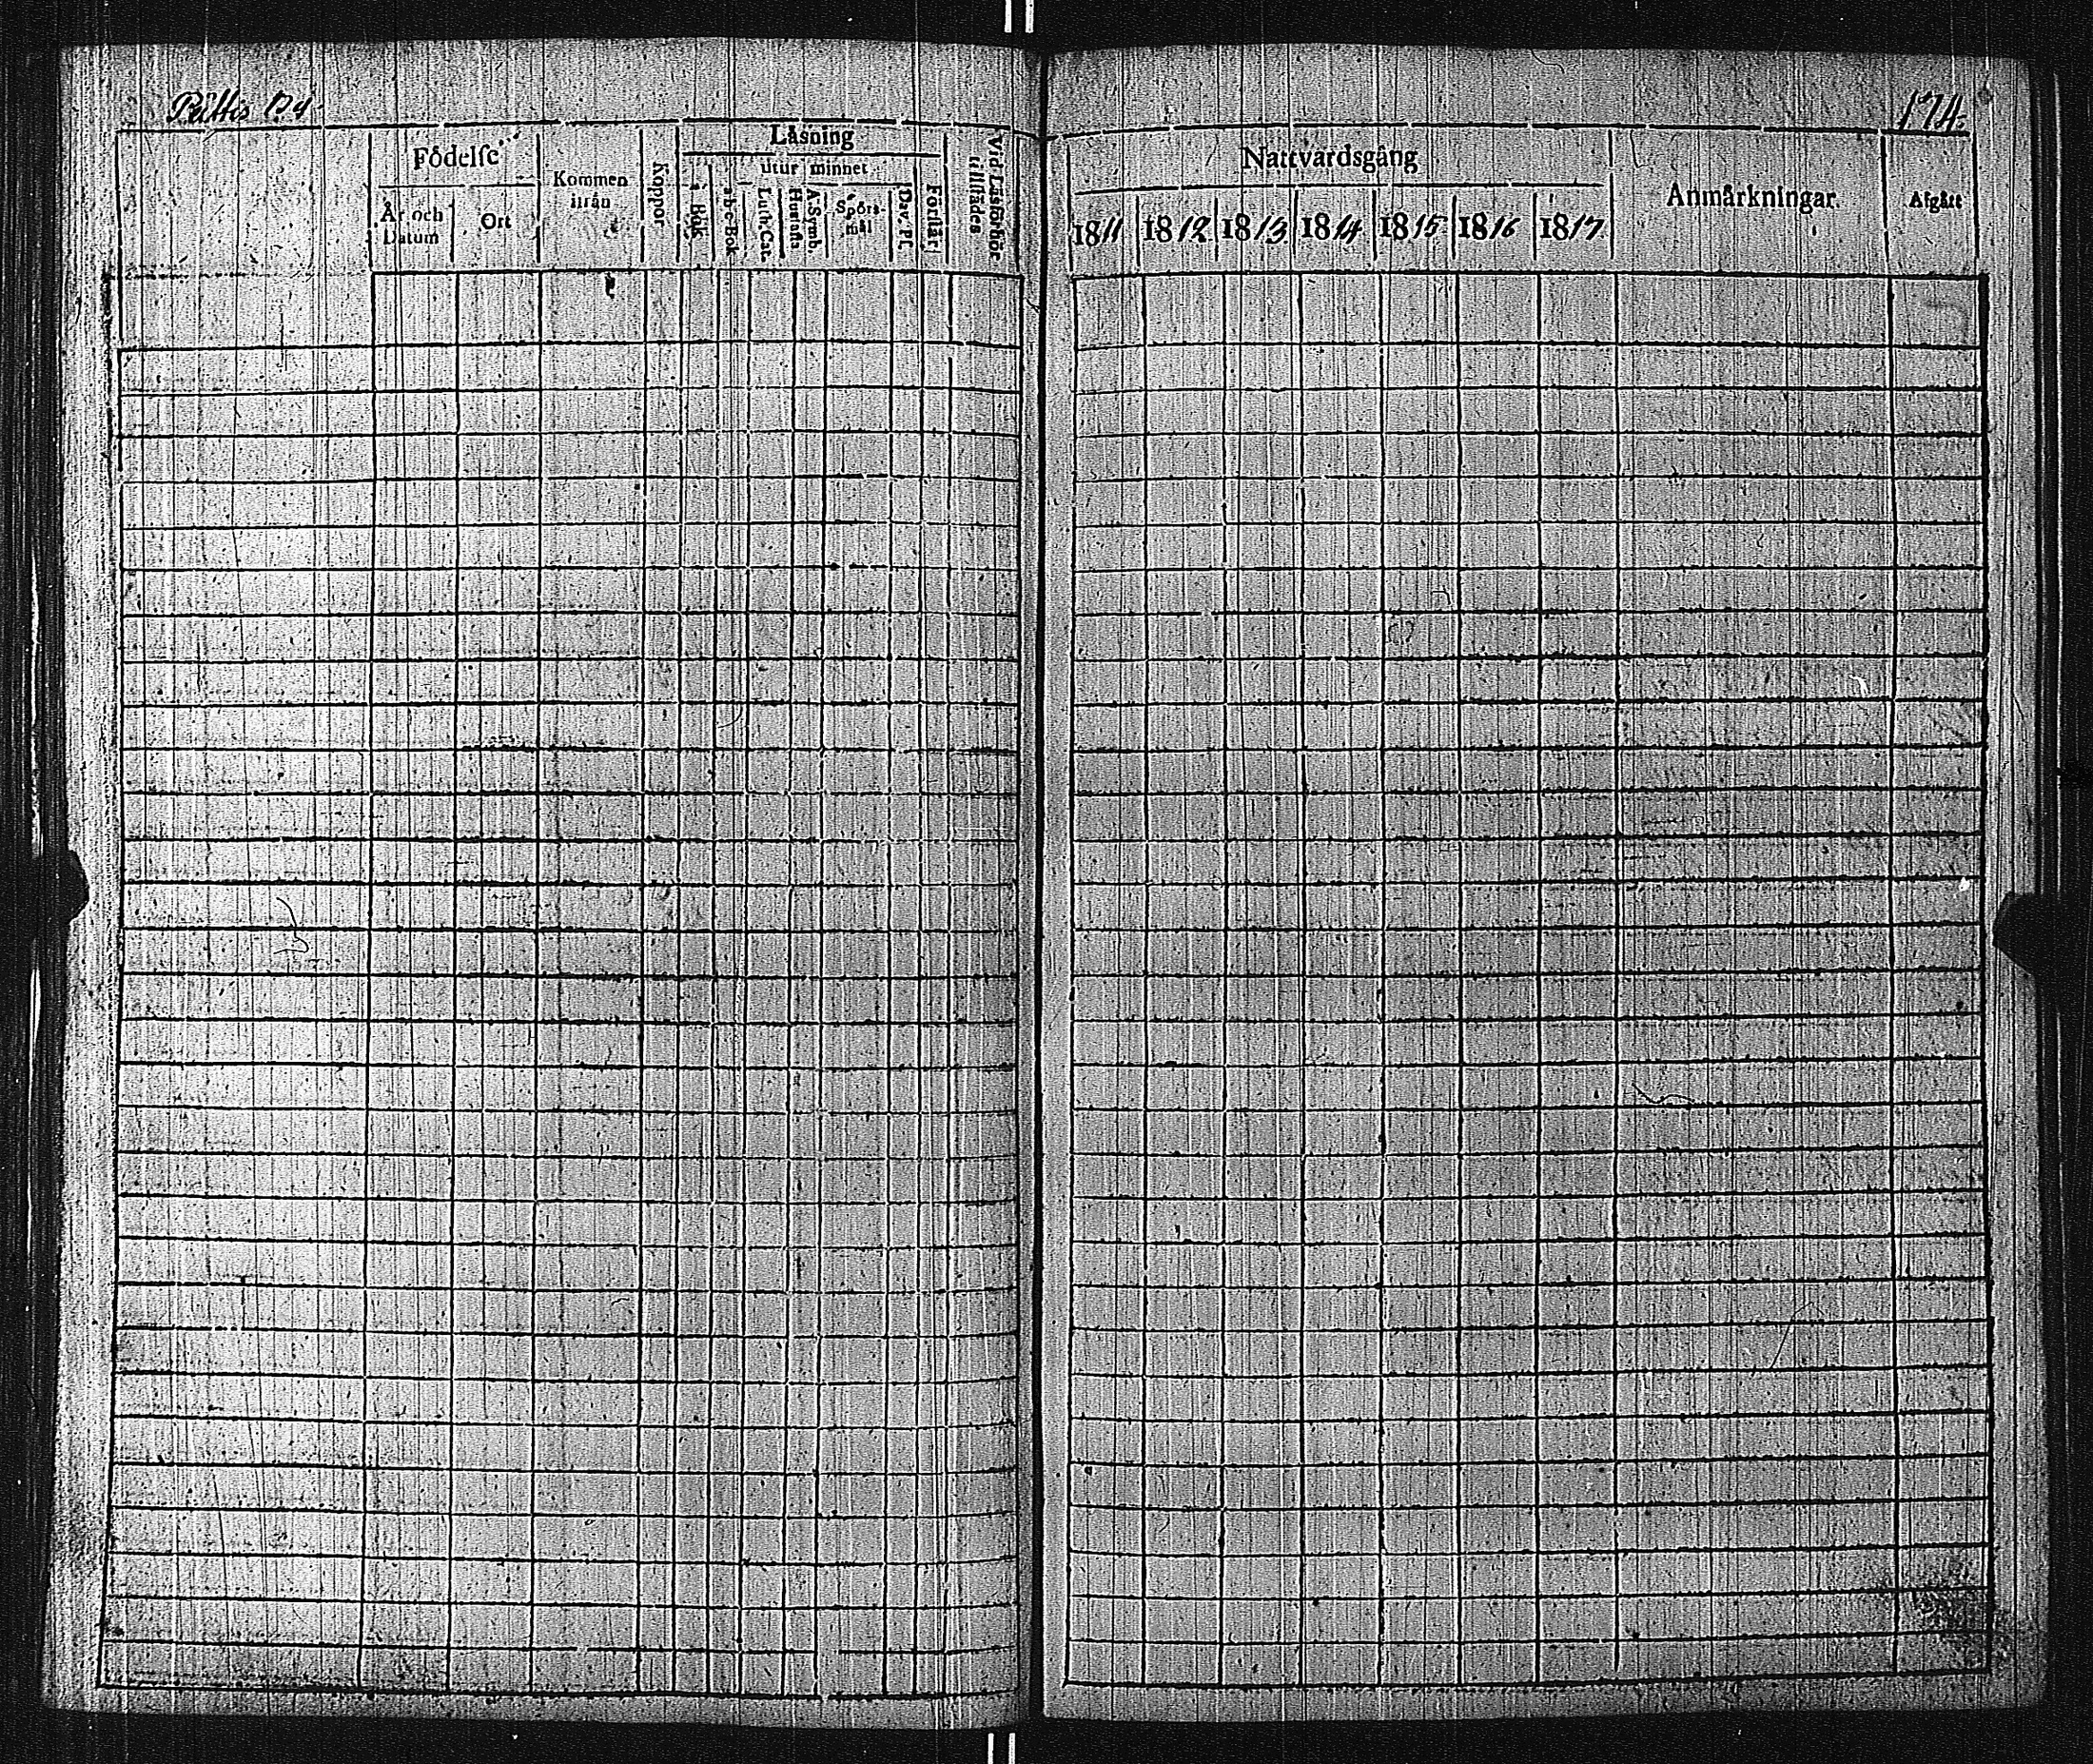 174.
Födelse
Kommen ifrån
Koppor
Läsning
utur minnet
Vid Läsförhör tillstädes
År och Datum
Ort
i Bok
a-b-c-Bok
Luth. Cat.
Hustafl.
A. Symb.
Spörsmål
Dav. Ps.
Förstår
Nattvardsgång
Anmärkningar.
Afgått
1811 1812 1813 1814 1815 1816 1817